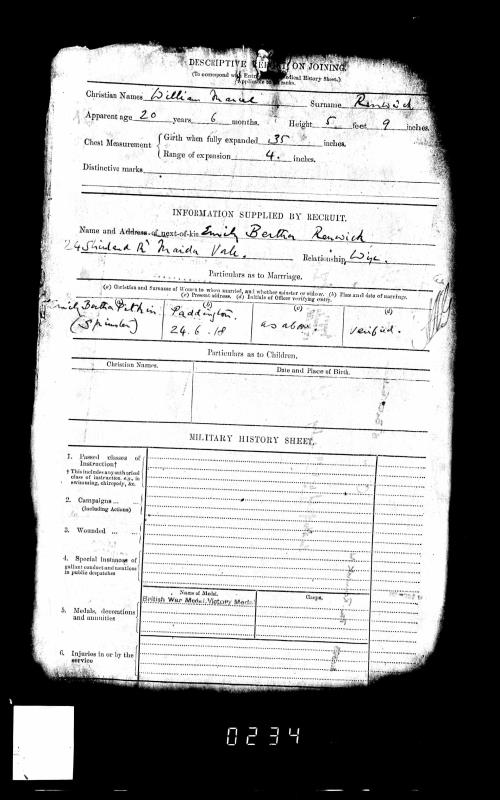 DESCRIPTIVE REPORT ON JOINING.
(To correspond with Entries Medical History Sheet.)
Christian Names William Surname Renwick
Apparent age 20 years 6 months. Height 5 feet 9 inches.
Chest Measurement { Girth when fully expanded 35 inches.
Range of expansion 4. inches.
Distinctive marks
INFORMATION SUPPLIED BY RECRUIT.
Name and Address of next-of-kin Emily Bertha Renwick
24 Rd Maida Vale. Relationship Wife.
Particulars as to Marriage.
(a) Christian and Surname of Woman to whom married, and whether spinster or widow. (b) Place and date of marriage.
(c) Present address. (d) Initials of Officer verifying entry.
(b) (c) (d)
Emily Bertha Paddington. as above. verified.
(Spinster) 24.6.18
Particulars as to Children.
Christian Names. Date and Place of Birth.
MILITARY HISTORY SHEET.
1. Passed classes of
Instruction†
† This includes any authorised
class of instruction, e.g., in
swimming, chiropody, &c.
2. Campaigns ...
(including Actions)
3. Wounded ... ...
4. Special instances of
gallant conduct and mentions
in public despatches
Name of Medal. Clasps.
British War Medal, Victory Medal
5. Medals, decorations
and annuities
6. Injuries in or by the
service
0234